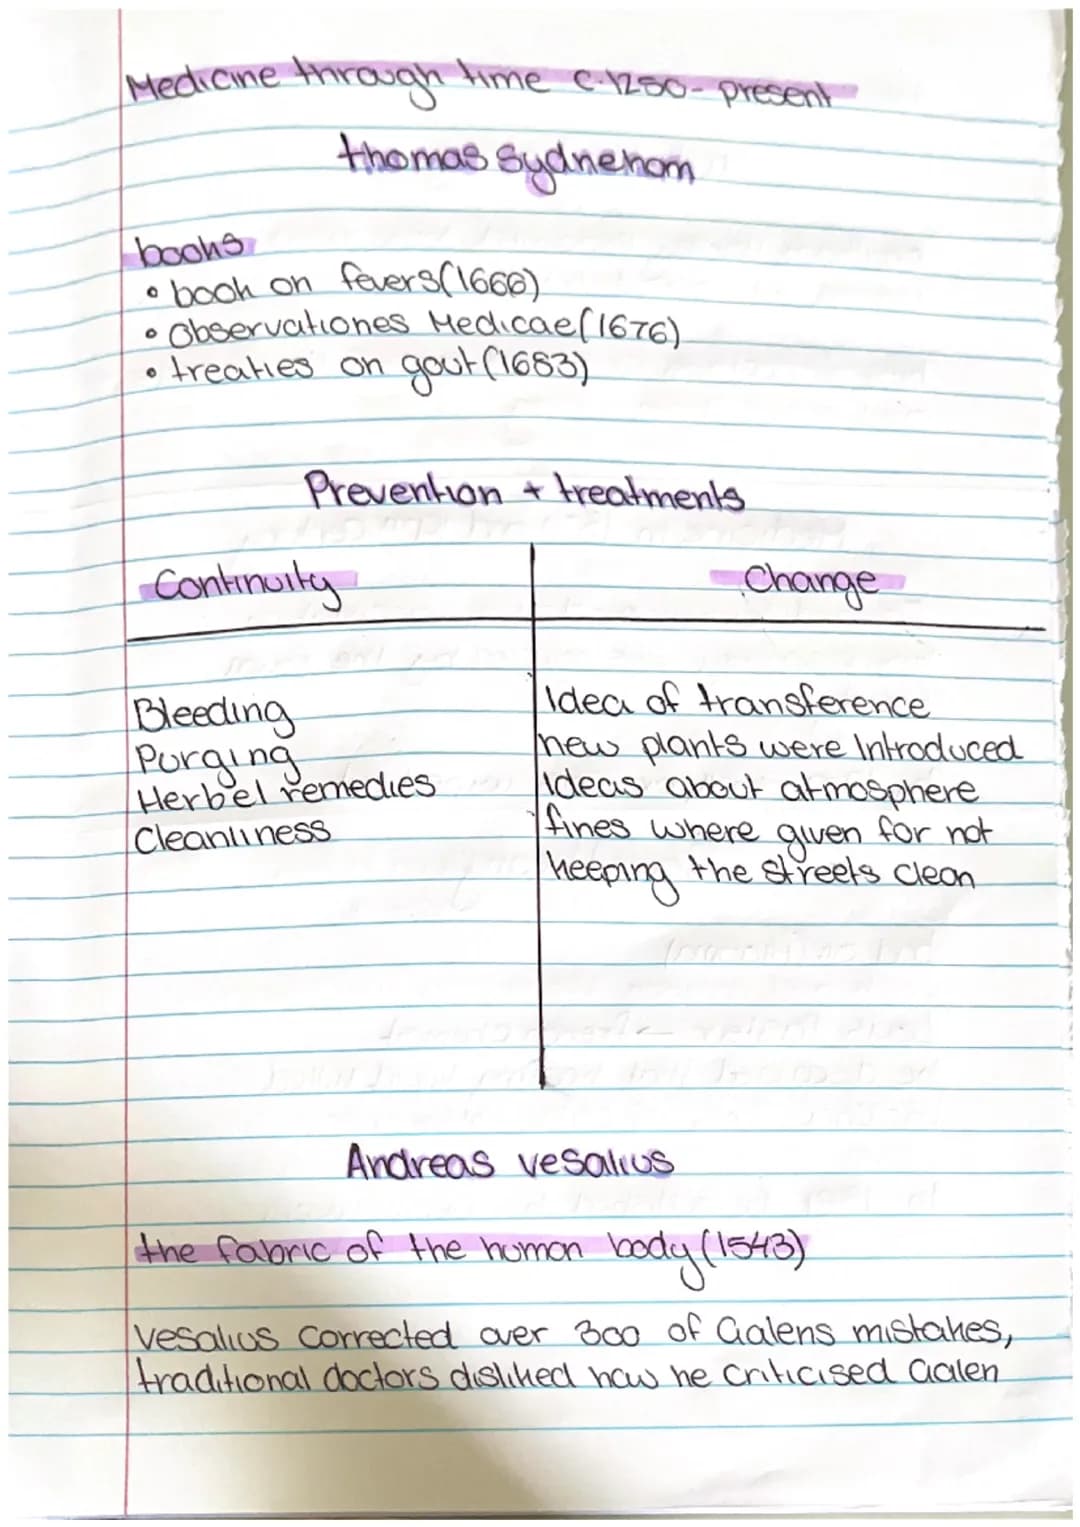 Medicine through time c.1250 - present
thomas Sydnenom
books
• book on fevers (1666)
• Observationes Medicae (1676)
• treaties on gout (1683)
Prevention + treatments
Continuity
Change
Bleeding
Purging
Herbel remedies
Cleanliness
Idea of transference
new plants were Introduced
Ideas about atmosphere
fines where given for not
keeping the streets clean
Andreas vesalius
the fabric of the human body (1543)
Vesalius corrected over 300 of Galens mistakes,
traditional doctors disliked how he criticised Galen